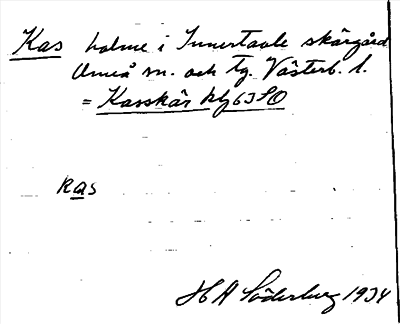 Kas holme i Innertavle skärgård
Umeå sn. och tg. Västerb. l.
= Kasskär kbl 63 SO
kas
H A Söderberg 1934